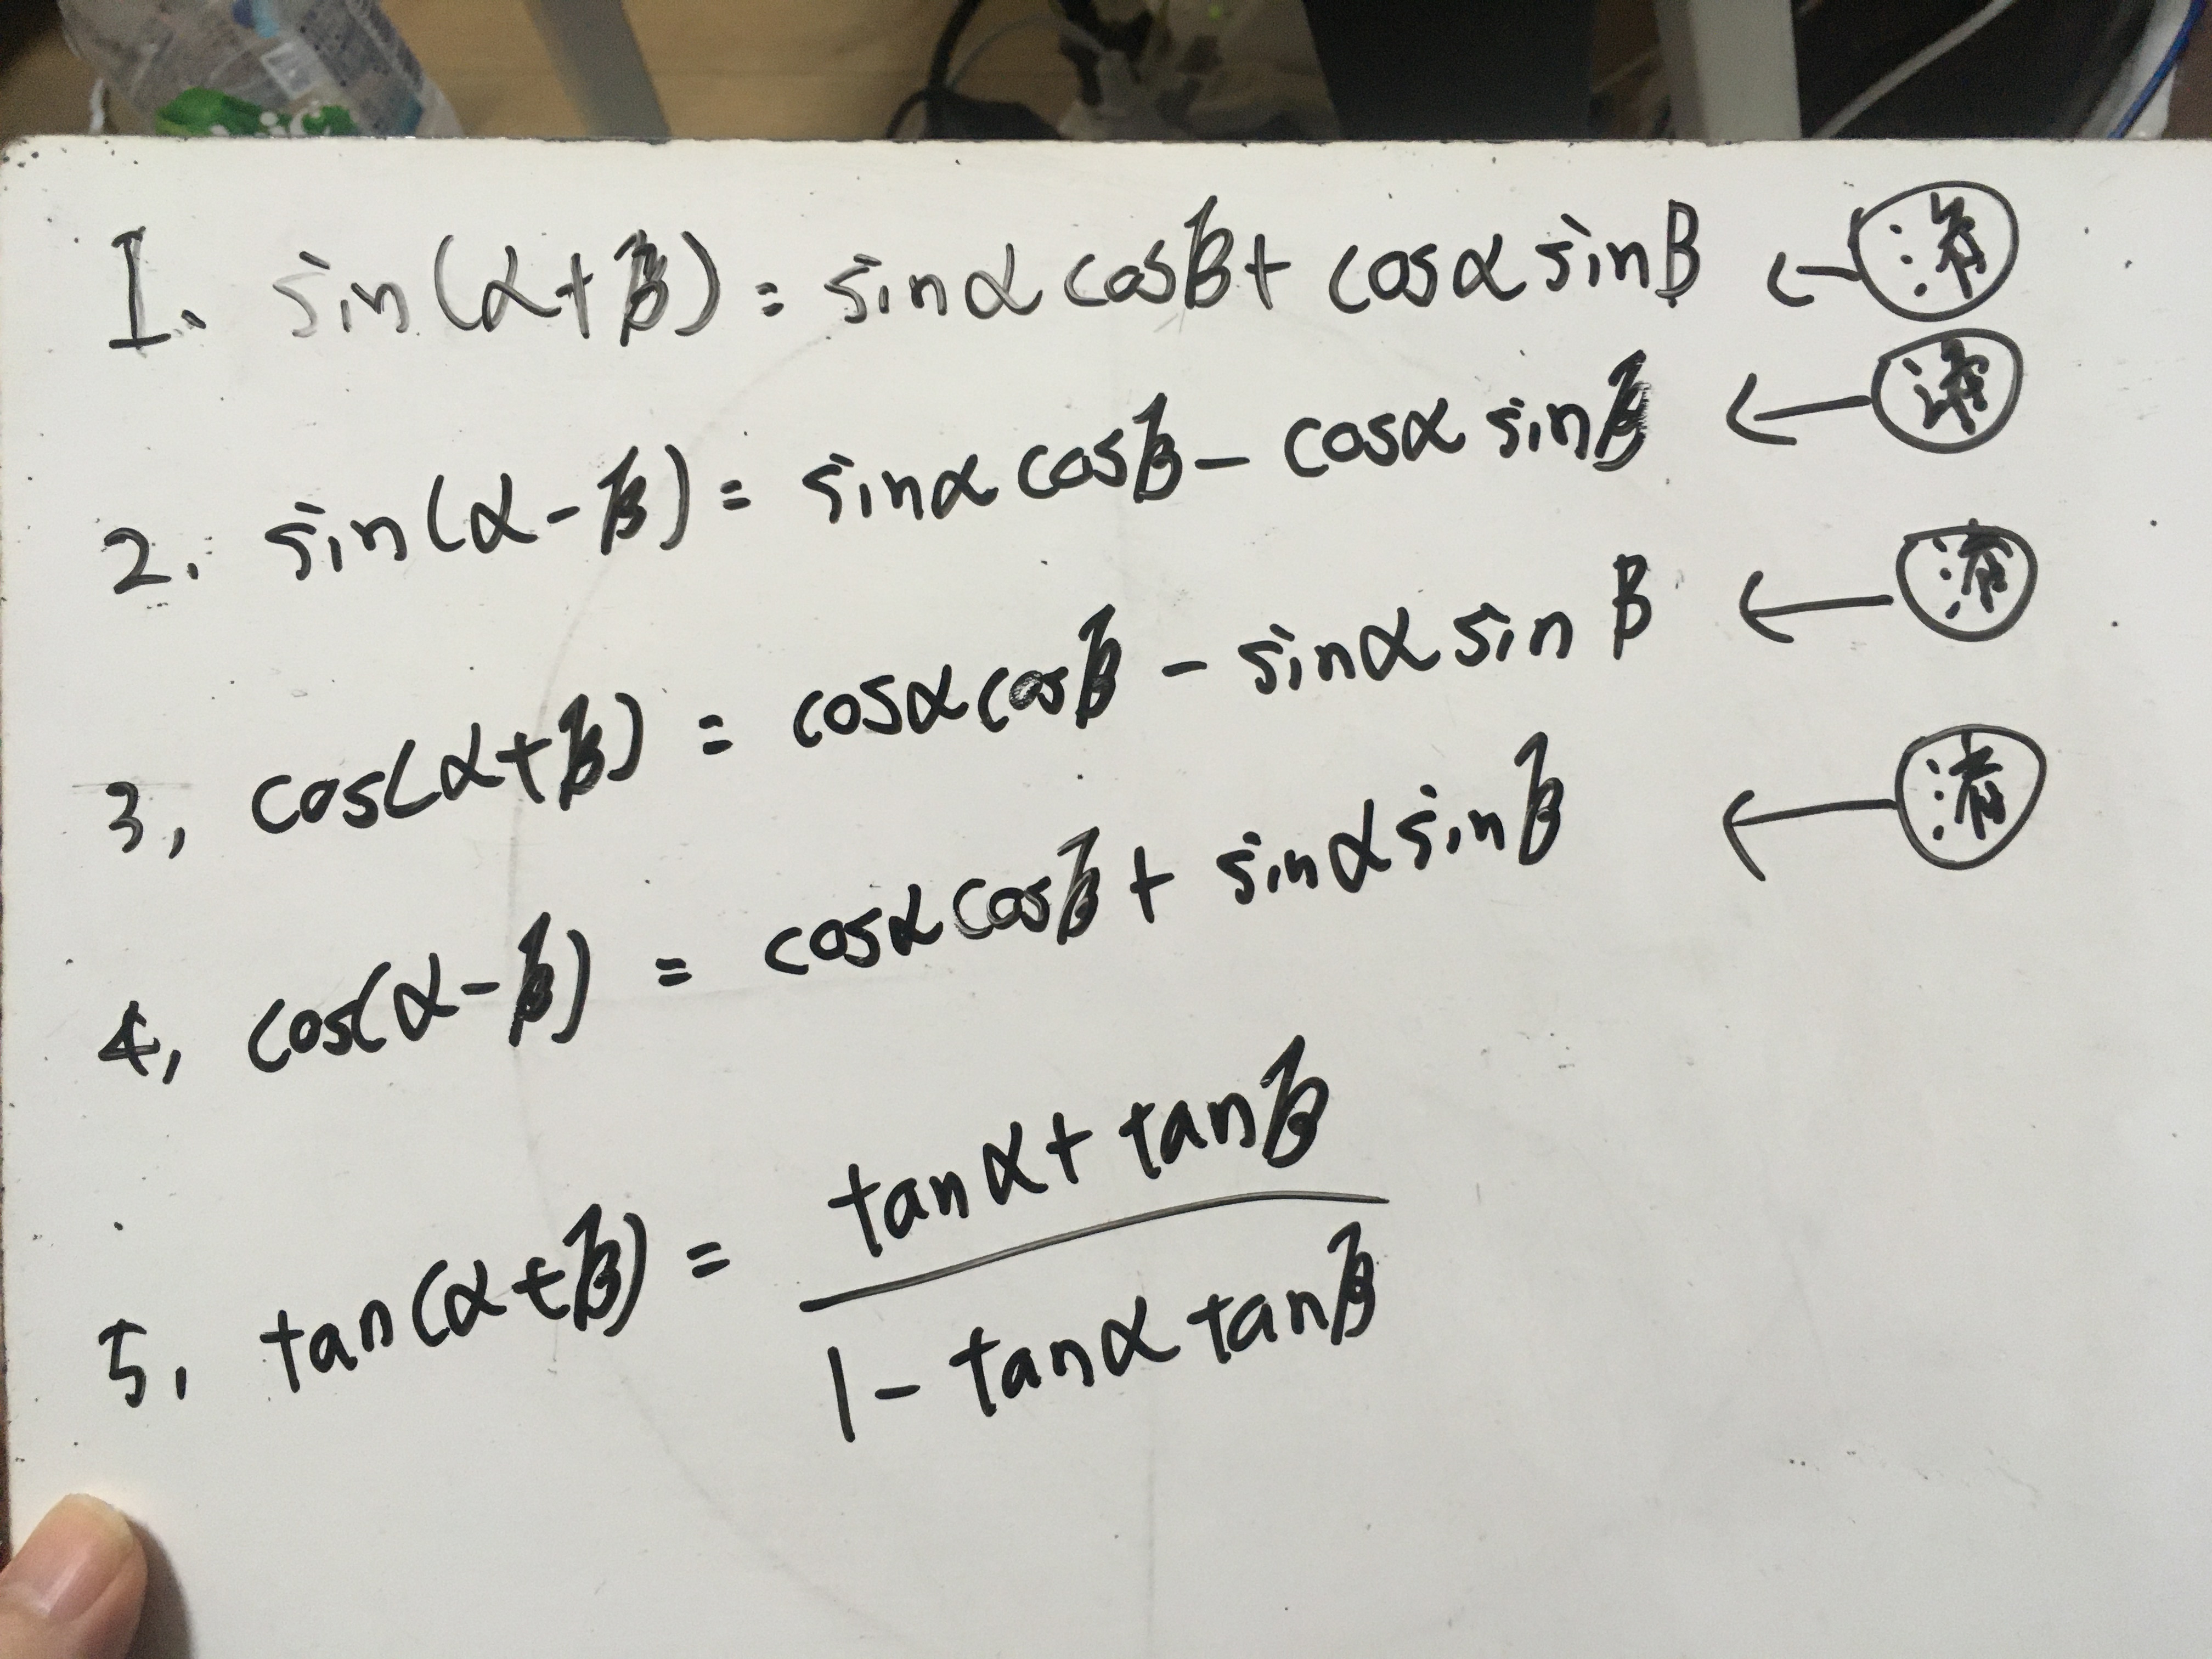 1. sin(α+β)=sinαcosβ+cosαsinβ ←
2. sin(α-β)=sinαcosβ-cosαsinβ ←
3, cos(α+β)=cosαcosβ-sinαsinβ ←
4, cos(α-β)=cosαcosβ+sinαsinβ ←
5, tan(α+β)= tanα+tanβ
1-tanαtanβ